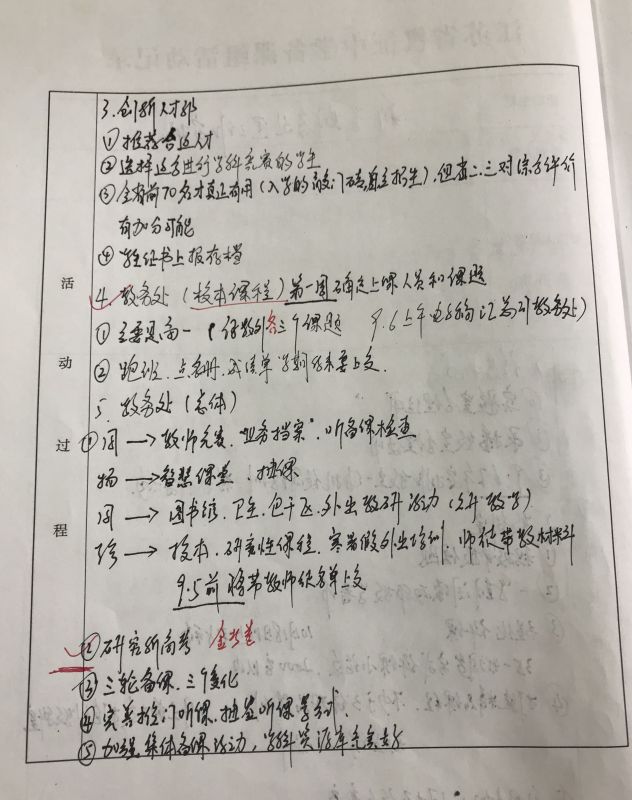 3.创新人才部
①推荐合适人才
②选择适合进行学科竞赛的学生
③全省前70名才真正有用(入学的敲门砖,自主招生),但省二、三对综合评价
有加分可能
④学生证书上报存档
4.教务处(校本课程)第一周确定上课人员和课题
①主要是高一 各三个课题 9.6上午 电子稿汇总到教务处)
②跑班、点名册、成绩单学期结束要上交.
5、教务处(总体)
①周→教师竞赛."业务档案".听备课检查
杨→智慧课堂、推课
周→图书馆、卫生、包干区、外出教研活动(先升教学)
珍→校本、研究性课程、寒暑假外出培训 师徒带教材料
9.5前将带教师徒名单上交
②研究新高考 金考卷
③三轮备课.三个变化
④完善推门听课、抽签听课等形式.
⑤加强集体备课活动,学科资源库完善好
活动过程